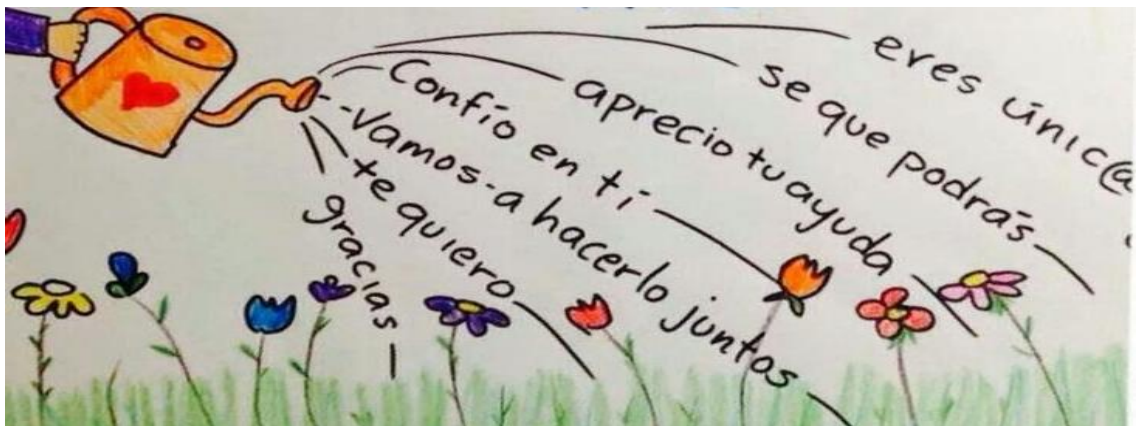 eres únic@
se que podrás
aprecio tu ayuda
Confío en tí
Vamos a hacerlo juntos
te quiero
gracias